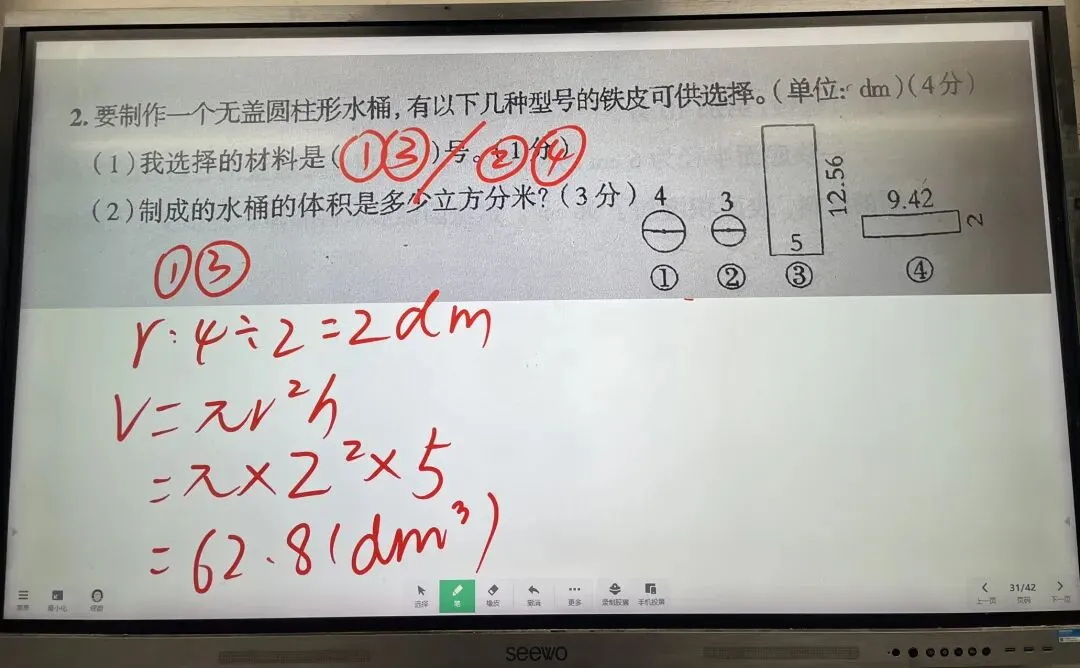 2.要制作一个无盖圆柱形水桶,有以下几种型号的铁皮可供选择。(单位: dm)(4分)
(1)我选择的材料是(①③)号。/②④1分)
(2)制成的水桶的体积是多少立方分米?(3分)
4
3
5
12.56
9.42
2
①
②
③
④
①③
r:4÷2=2dm
V=πr²h
=π×2²×5
=62.8(dm³)
选择
笔
橡皮
撤消
更多
手机投屏
上一页
31/42
页码
下一页
最小化
seewo